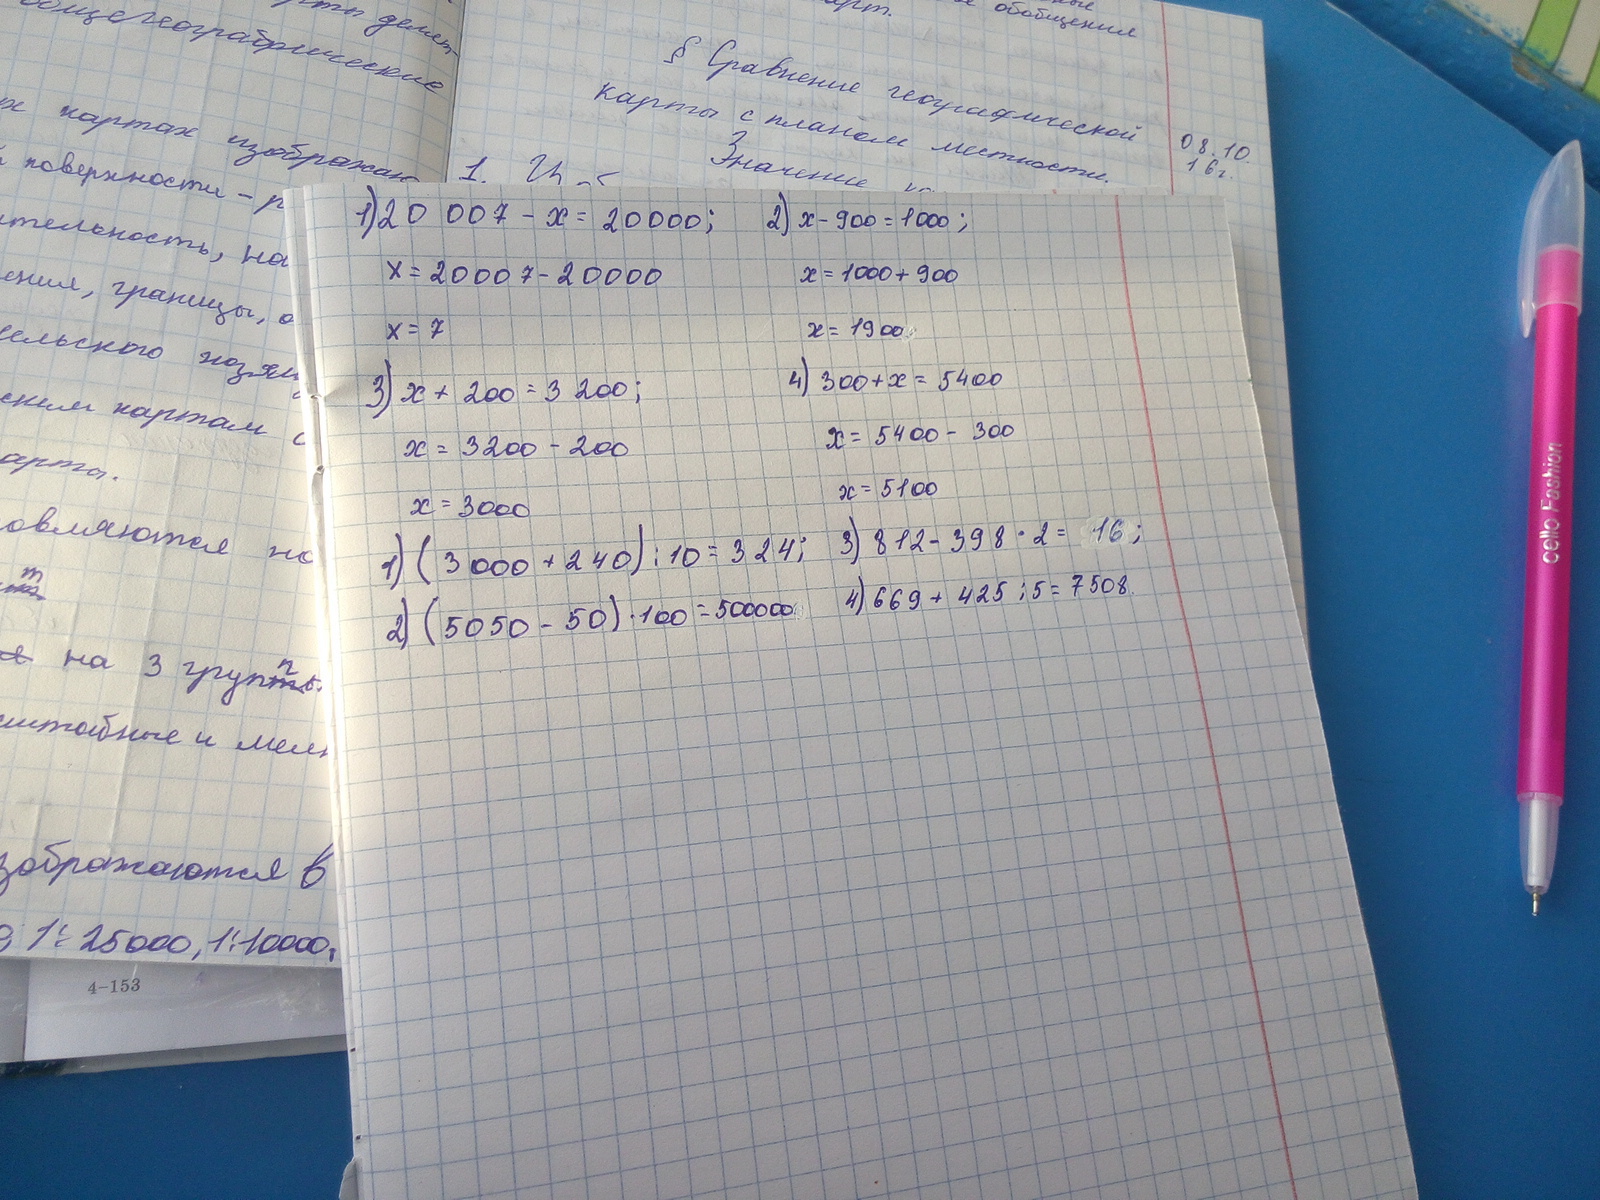 карты делят-
общегеографические
х картах изображаю
поверхности - р
ительность, на
ения, границы, о
сельского хозяй
ским картам с
арты.
овляются на
на 3 группы.
сштабные и мелк
зображаются в
1:25000, 1:10000,
4-153
обобщения
карт.
§ Сравнение географической
карты с планом местности.
Значение
08.10.
16г.
1.
1) 20 007 - x = 20000;
x = 20007 - 20000
x = 7
2) x - 900 = 1000;
x = 1000 + 900
x = 1900
3) x + 200 = 3 200;
x = 3200 - 200
x = 3000
4) 300 + x = 5400
x = 5400 - 300
x = 5100
1) (3 000 + 240) : 10 = 324;
2) (5050 - 50) · 100 = 500000
3) 812 - 398 · 2 = 16;
4) 669 + 425 : 5 = 7508.
cello Fashion